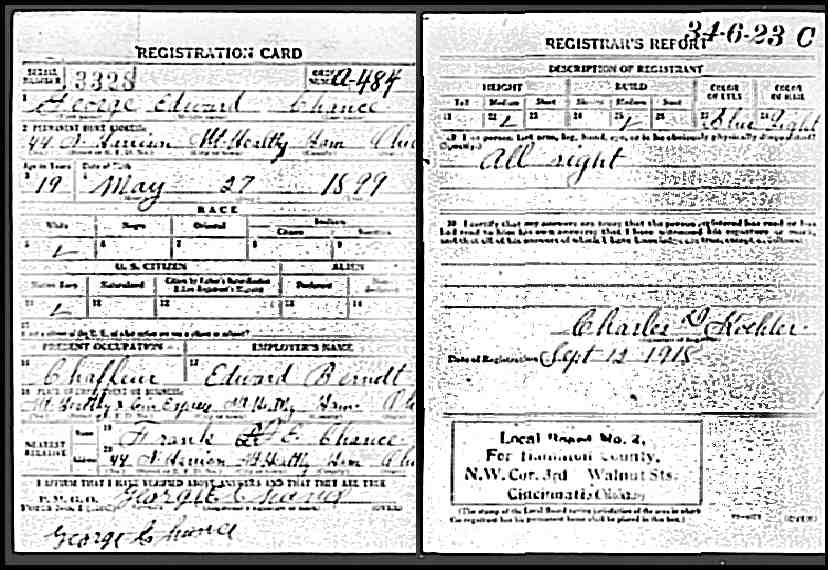 REGISTRATION CARD
SERIAL NUMBER 3328 ORDER NUMBER A-484
1 George Edward Chance
2 PERMANENT HOME ADDRESS
44 N Harrison Mt Healthy Ham Ohio
Age in Years Date of Birth
3 19 4 May 27 1899
RACE
White Negro Oriental Indian
Citizen
5 6 7 8 9
U. S. CITIZEN ALIEN
Native Born Naturalized Citizen by Father's Naturalization
10 11 12 13 14
15
PRESENT OCCUPATION EMPLOYER'S NAME
16 17
Edward Berndt
18 PLACE OF EMPLOYMENT OR BUSINESS
Mt Healthy & Cin Express Mt Healthy Ham
NEAREST RELATIVE Name 19 Frank Chance
Address 20 44 N Harrison Mt Healthy Ham Ohio
I AFFIRM THAT I HAVE VERIFIED ABOVE ANSWERS AND THAT THEY ARE TRUE
P. M. G. O.
George Chance
George E Chance
34-6-23 C
REGISTRAR'S REPORT
DESCRIPTION OF REGISTRANT
HEIGHT BUILD COLOR OF EYES COLOR OF HAIR
Tall Medium Short Slender Medium Stout
21 22 23 24 25 26 27 Blue 28 Light
29 Has person lost arm, leg, hand, eye, or is he obviously physically disqualified?
(Specify.)
All right
30 I certify that my answers are true; that the person registered has read or has
had read to him his own answers; that I have witnessed his signature or mark,
and that all of his answers of which I have knowledge are true, except as follows:
Charles Koehler
Date of Registration Sept 12 1918
Local Board No. 2,
For Hamilton County,
N.W. Cor. 3rd Walnut Sts.
Cincinnati, Ohio
(The stamp of the Local Board having jurisdiction of the area in which
the registrant has his permanent home shall be placed in this box.)
(OVER)